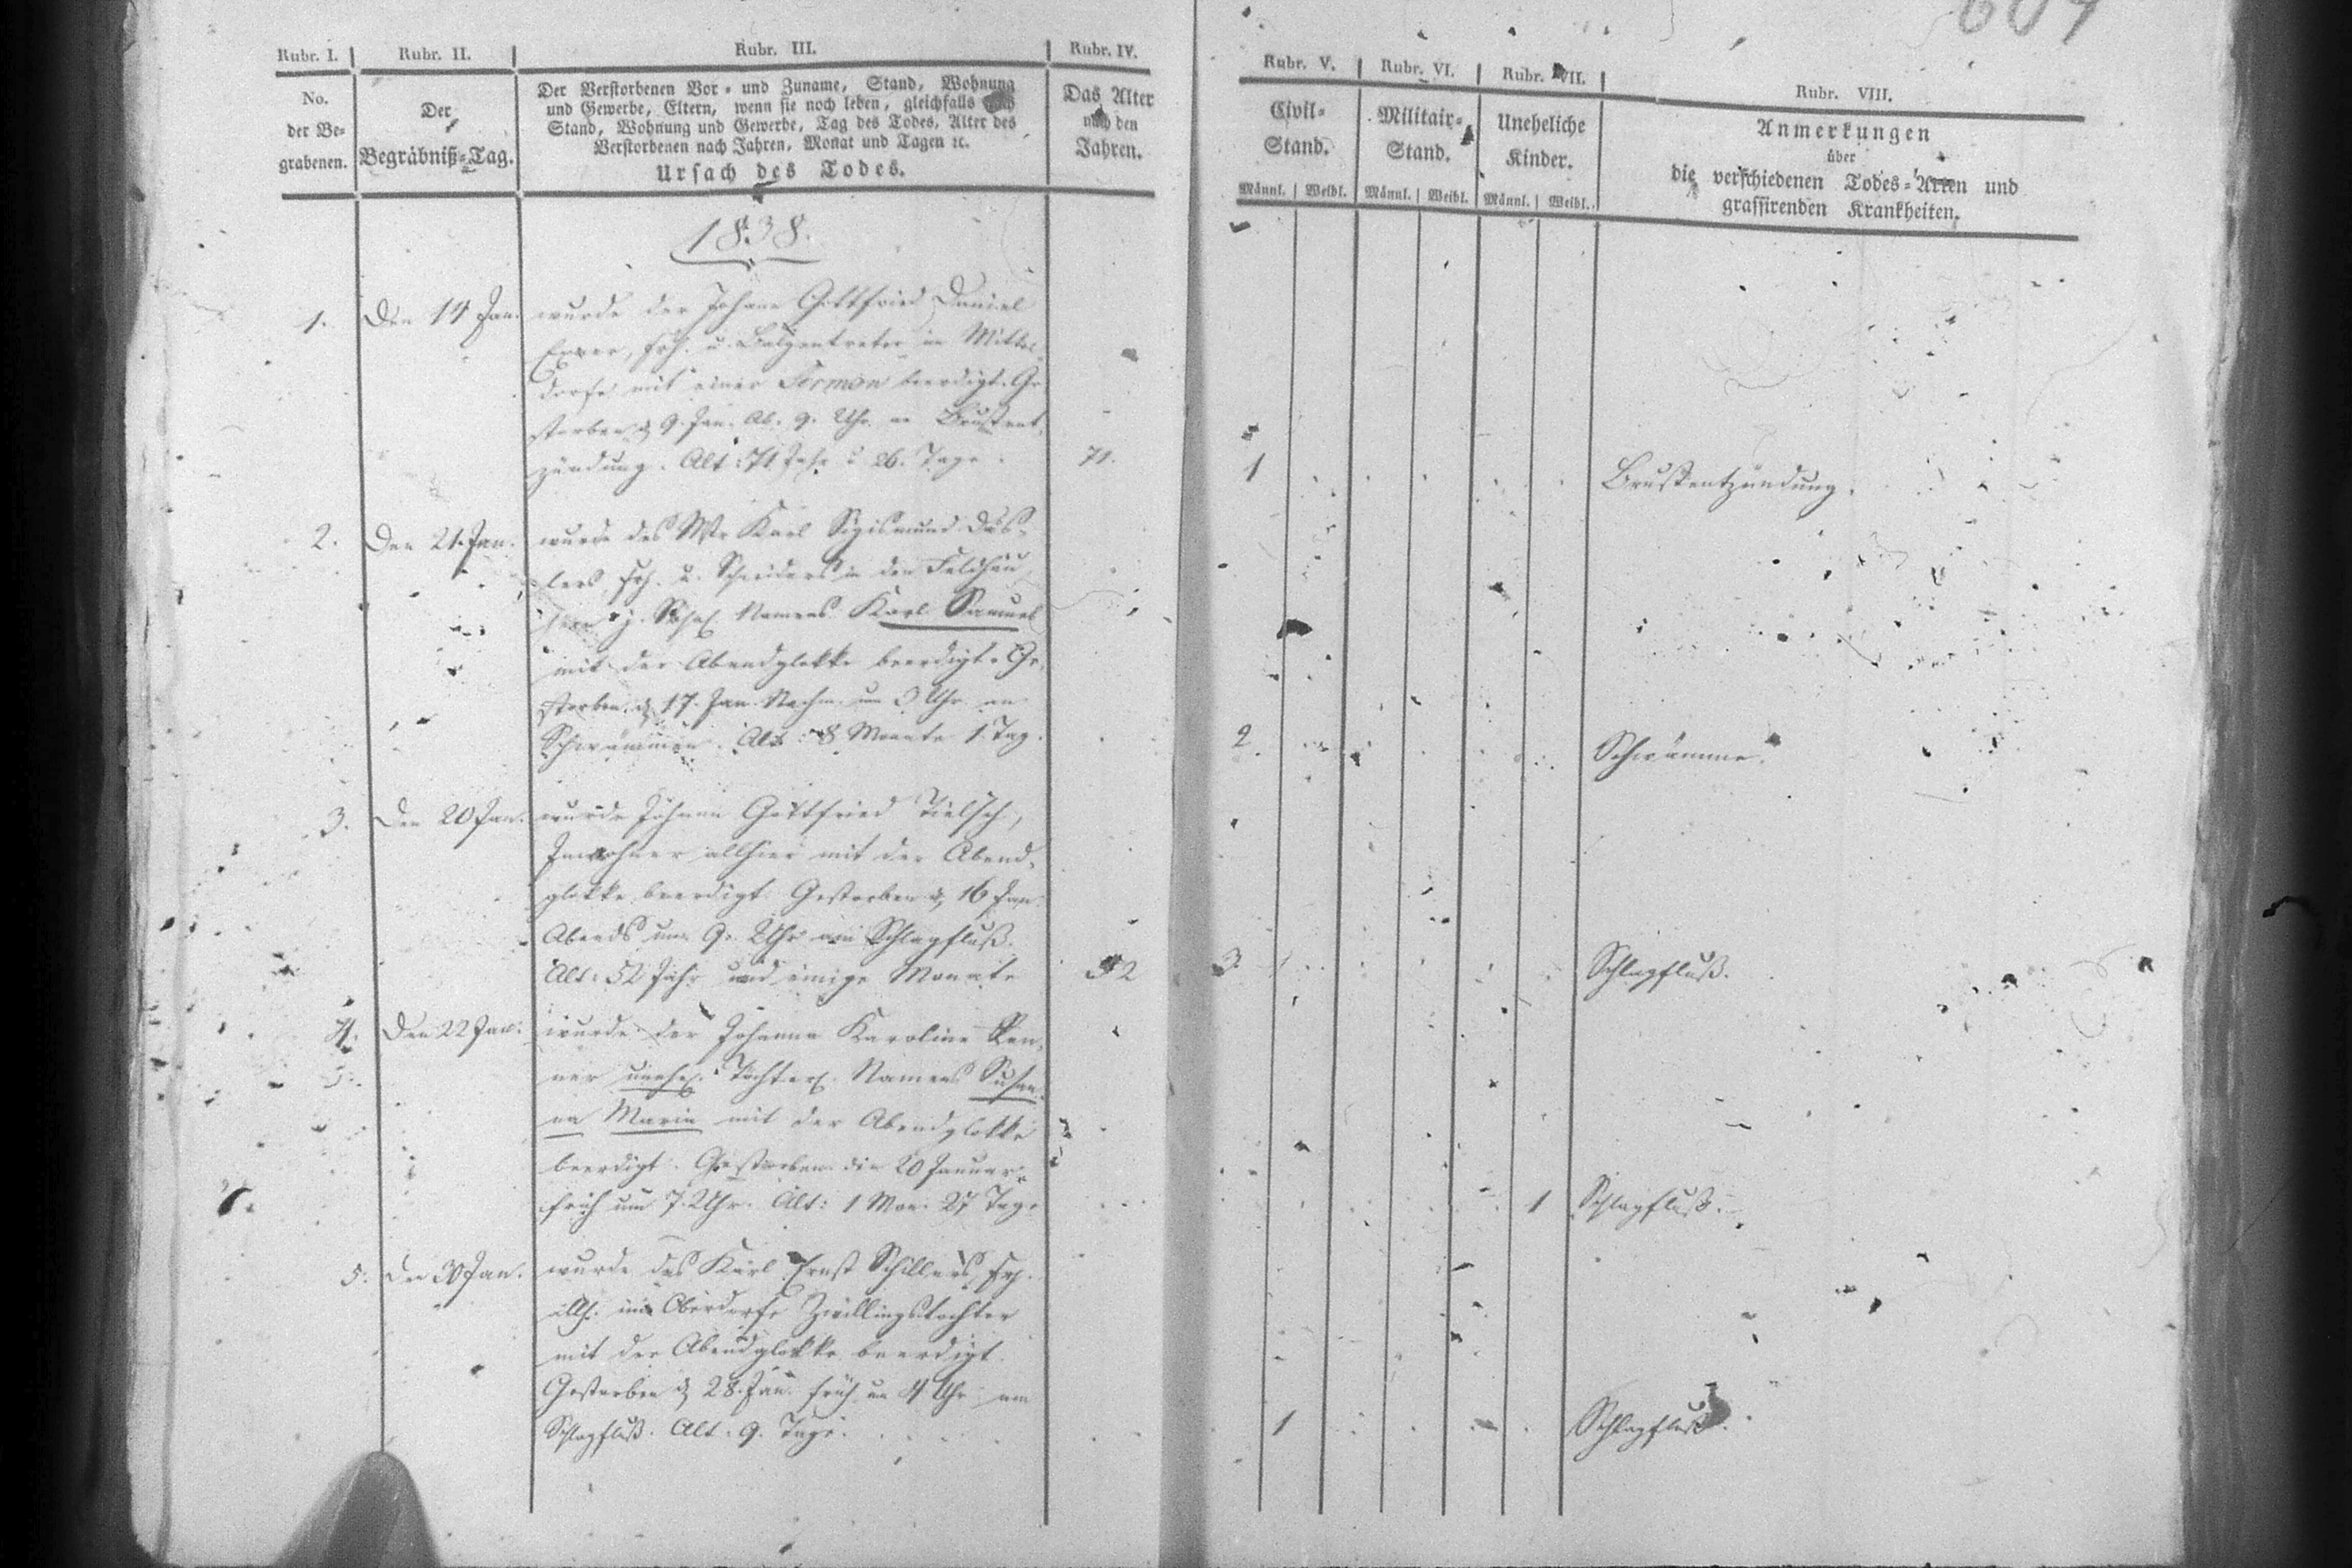 604
Rubr. I. Rubr. II. Rubr. III. Rubr. IV.
No.
der Be-
grabenen.
Der
Begräbniß-Tag.
Der Verstorbenen Vor- und Zuname, Stand, Wohnung
und Gewerbe, Eltern, wenn sie noch leben, gleichfalls nach
Stand, Wohnung und Gewerbe, Tag des Todes, Alter des
Verstorbenen nach Jahren, Monat und Tagen ꝛc.
Ursach des Todes.
Das Alter
nach den
Jahren.
Rubr. V. Rubr. VI. Rubr. VII. Rubr. VIII.
Civil-
Stand.
Militair-
Stand.
Uneheliche
Kinder.
Anmerkungen
über
die verschiedenen Todes-Arten und
grassirenden Krankheiten.
Männl. Weibl. Männl. Weibl. Männl. Weibl.
1838.
1. Den 14 Jan. wurde der Johann Gottfried Daniel
u. Balgentreter in Mittel-
dorfe mit einer Sermon beerdigt. Ge-
storben d. 9. Jan. Ab. 9. Uhr an Brustent-
zündung. Alt: 71 Jahr u. 26. Tage. 71. 1 Brustentzündung.
2. Den 21. Jan. wurde des Mstr Karl Sigismund Däs-
lers u. Schneiders in den Feldhäu-
Namens Karl Samuel
mit der Abendglokke beerdigt. Ge-
storben d. 17. Jan. Nachm. um 3 Uhr an
Schwämmen. Alt: 8 Monate 1. Tag. 2. Schwämme.
3. Den 20 Jan. wurde Johann Gottfried Tielsch,
Inwohner allhier mit der Abend-
glokke beerdigt. Gestorben d. 16 Jan.
Abends um 9. Uhr am Schlagfluß.
Alt: 52 Jahr und einige Monate 52 3. Schlagfluß.
4. Den 22 Jan. wurde der Johanna Karoline Ren-
ner unehel. Töchterl. Namens Susan-
na Maria mit der Abendglokke
beerdigt. Gestorben die 20 Januar
früh um 7. Uhr. Alt: 1 Mon. 27 Tage 1 Schlagfluß.
5. Den 30 Jan. wurde des Karl Ernst Schillers,
im Oberdorfe Zwillingstochter
mit der Abendglokke beerdigt.
Gestorben d. 28. Jan. früh um 4 Uhr am
Schlagfluß. Alt: 9. Tage. 1 Schlagfluß.